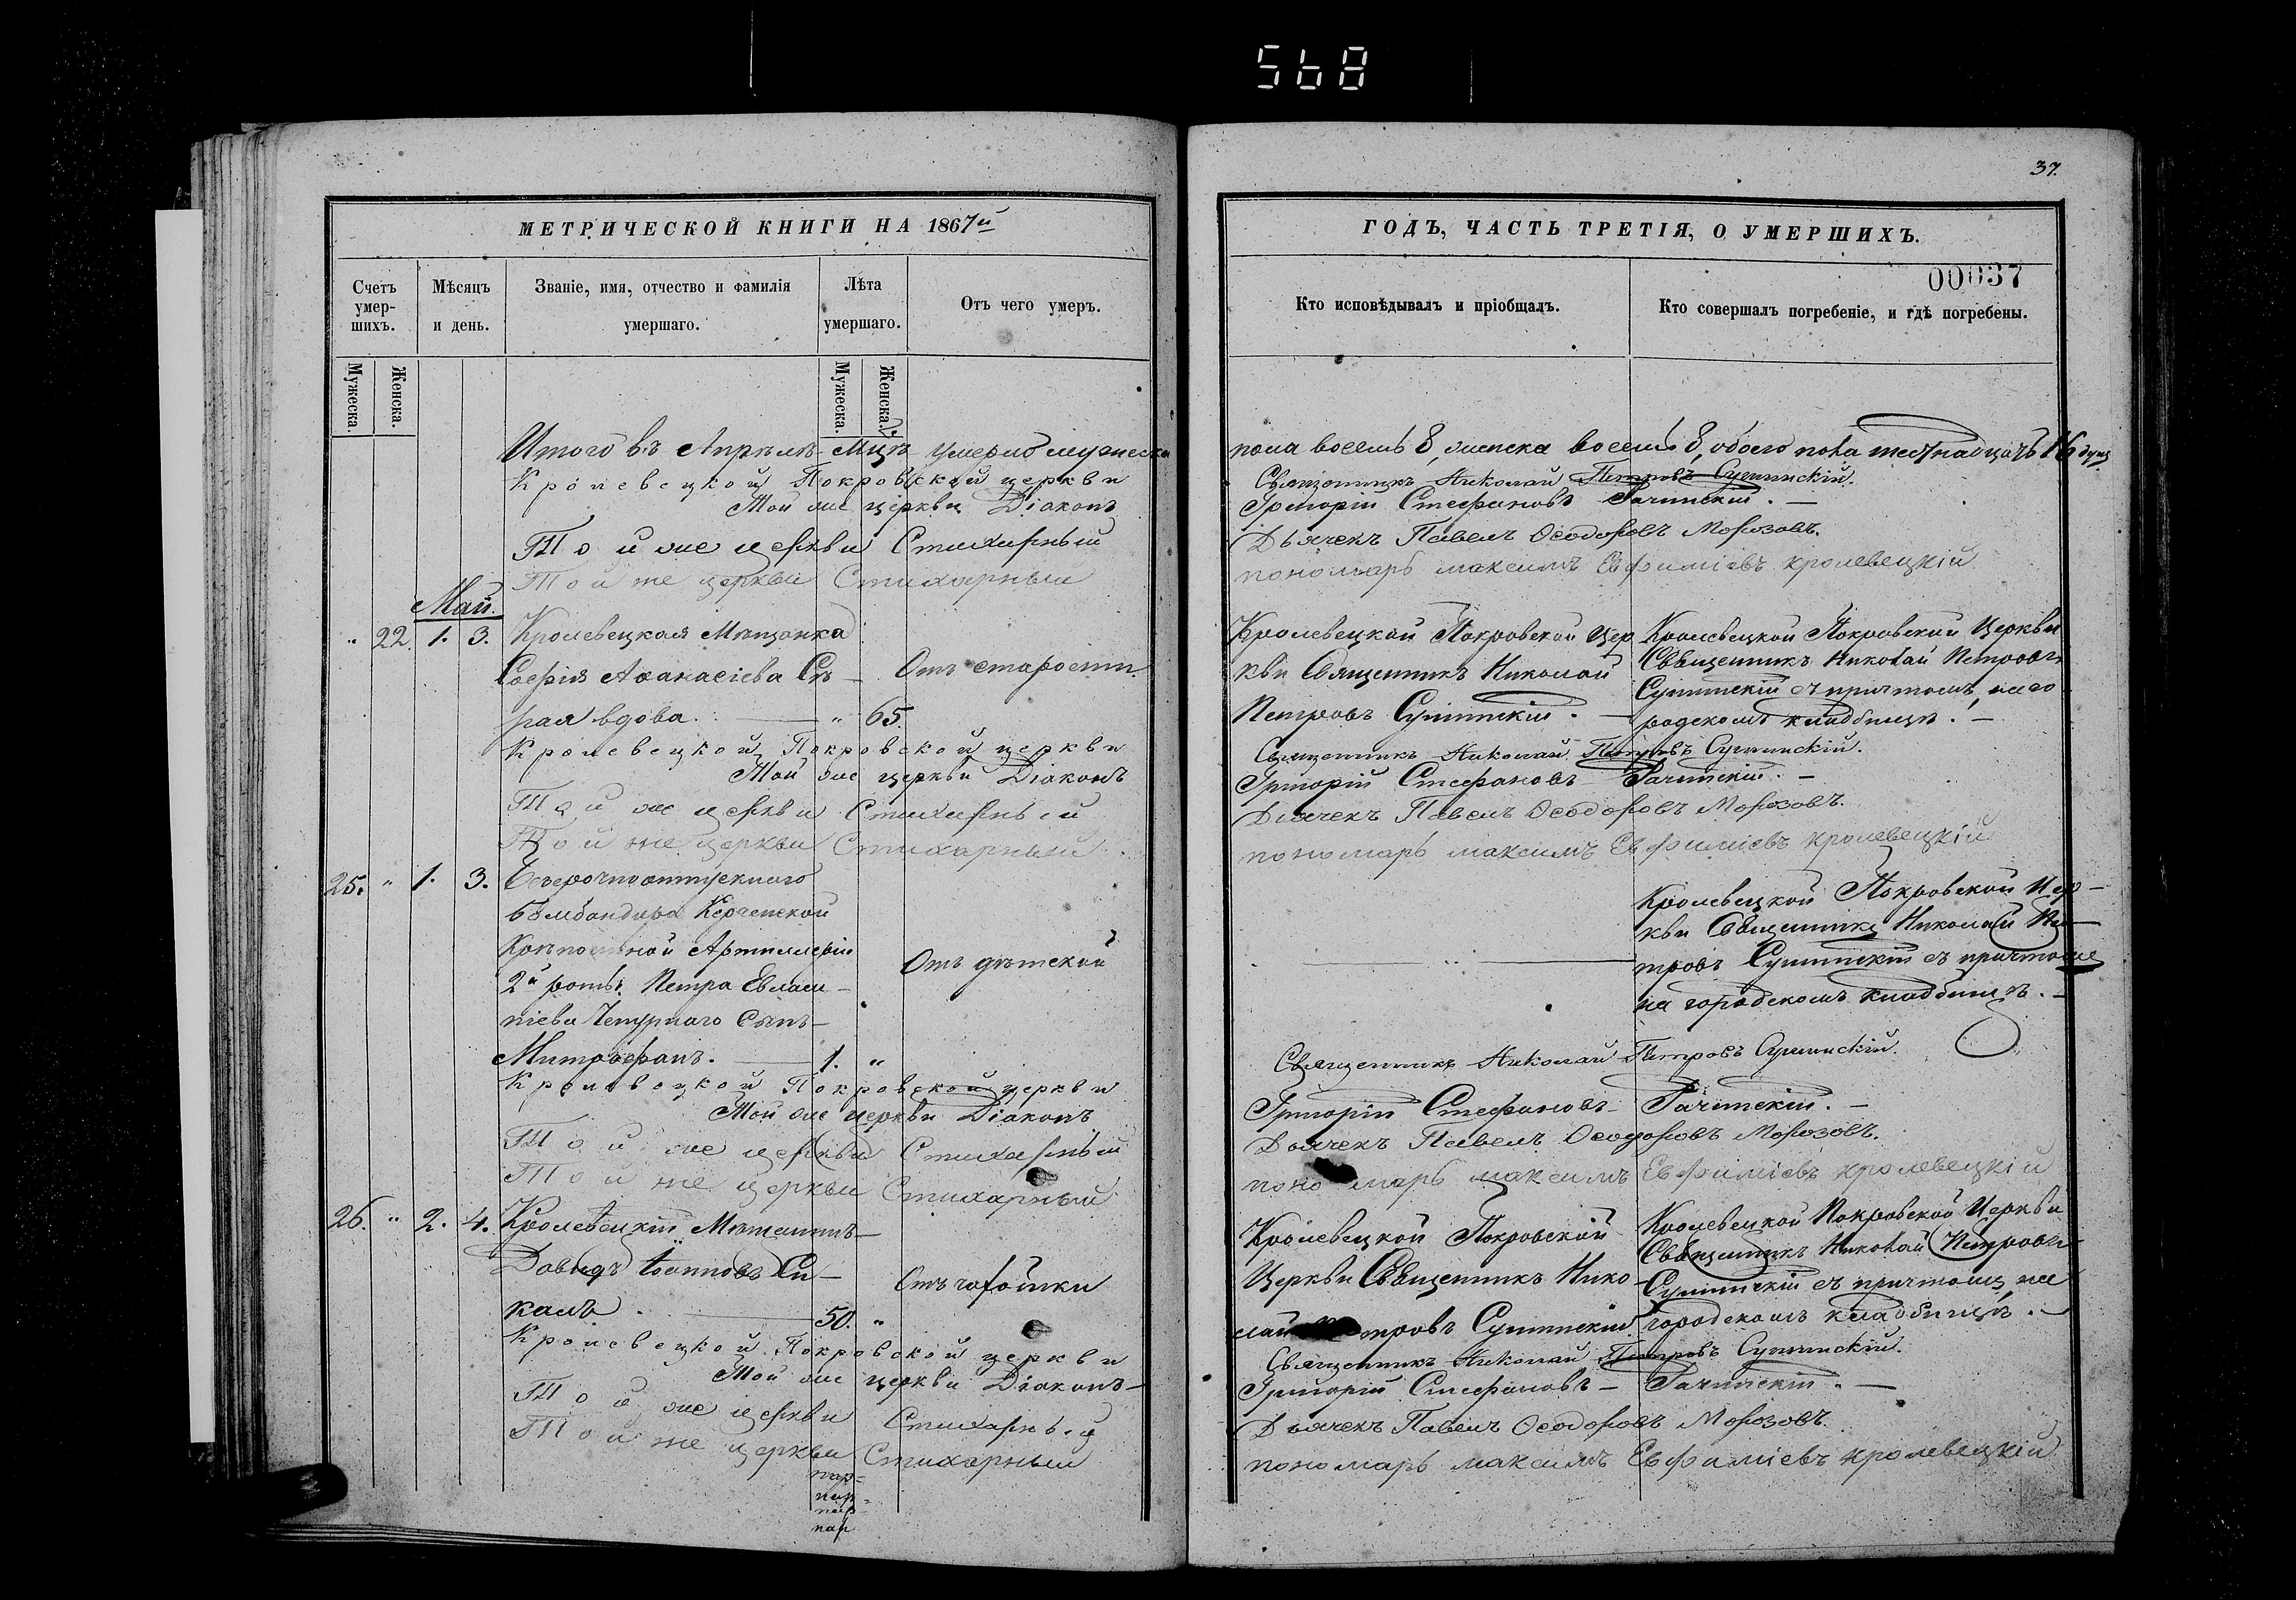 568
37.
МЕТРИЧЕСКОЙ КНИГИ НА 1867й
Счетъ умер-шихъ.
Мѣсяцъ и день.
Званіе, имя, отчество и фамилія умершаго.
Лѣта умершаго.
Отъ чего умеръ.
Мужеска.
Женска.
Мужеска.
Женска.
Итого въ Апрѣлѣ Мцѣ умерло мужеска
Кролевецкой Покровской церкви
Той же церкви Діаконъ
Той же церкви Стихарный
Той же церкви Стихарный
Май.
" 22. 1. 3. Кролевецкая Мѣщанка
Софія Аѳанасіева
Отъ старости.
рая вдова. — " 65.
Кролевецкой Покровской церкви
Той же церкви Діаконъ
Той же церкви Стихарный
Той же церкви Стихарный
25. " 1. 3. Безсрочноотпускного
Бомбандира Керченской
Крѣпостной Артиллеріи
Отъ дѣтской
2й роты Петра Евлам-
піева Чепурнаго Сынъ
Митрофанъ. — 1. "
Кролевецкой Покровской церкви
Той же церкви Діаконъ
Той же церкви Стихарный
Той же церкви Стихарный
26. " 2. 4. Кролевецкій Мѣщанинъ
Давидъ Іоанновъ Си-
Отъ чахотки
калъ. — 50. "
Кролевецкой Покровской церкви
Той же церкви Діаконъ
Той же церкви Стихарный
Той же церкви Стихарный
ГОДЪ, ЧАСТЬ ТРЕТІЯ, О УМЕРШИХЪ.
00037
Кто исповѣдывалъ и пріобщалъ.
Кто совершалъ погребеніе, и гдѣ погребены.
пола восемь 8, женска восемь 8, обоего пола шестнадцать 16 душ
Священникъ Николай Петровъ Сушинскій.
Григорій Стефановъ Рачинскій. —
Дьячекъ Павелъ Ѳеодоровъ Морозовъ.
пономарь максимъ Евфиміевъ кролевецкій
Кролевецкой Покровской Цер
кви Священникъ Николай
Петровъ Сушинскій. —
Кролевецкой Покровской Церкви
Священникъ Николай Петровъ
Сушинскій съ причтомъ, на го
родскомъ кладбищѣ. —
Священникъ Николай Петровъ Сушинскій.
Григорій Стефановъ Рачинскій. —
Дьячекъ Павелъ Ѳеодоровъ Морозовъ.
пономарь максимъ Евфиміевъ кролевецкій
Кролевецкой Покровской Цер-
кви Священникъ Николай Пе-
тровъ Сушинскій съ причтомъ
на городскомъ кладбищѣ. —
Священникъ Николай Петровъ Сушинскій.
Григорій Стефановъ Рачинскій. —
Дьячекъ Павелъ Ѳеодоровъ Морозовъ.
пономарь максимъ Евфиміевъ кролевецкій
Кролевецкой Покровской
Церкви Священникъ Нико-
лай Петровъ Сушинскій.
Кролевецкой Покровской Церкви
Священникъ Николай Петровъ
Сушинскій съ причтомъ на
городскомъ кладбищѣ. —
Священникъ Николай Петровъ Сушинскій.
Григорій Стефановъ — Рачинскій. —
Дьячекъ Павелъ Ѳеодоровъ Морозовъ.
пономарь максимъ Евфиміевъ кролевецкій